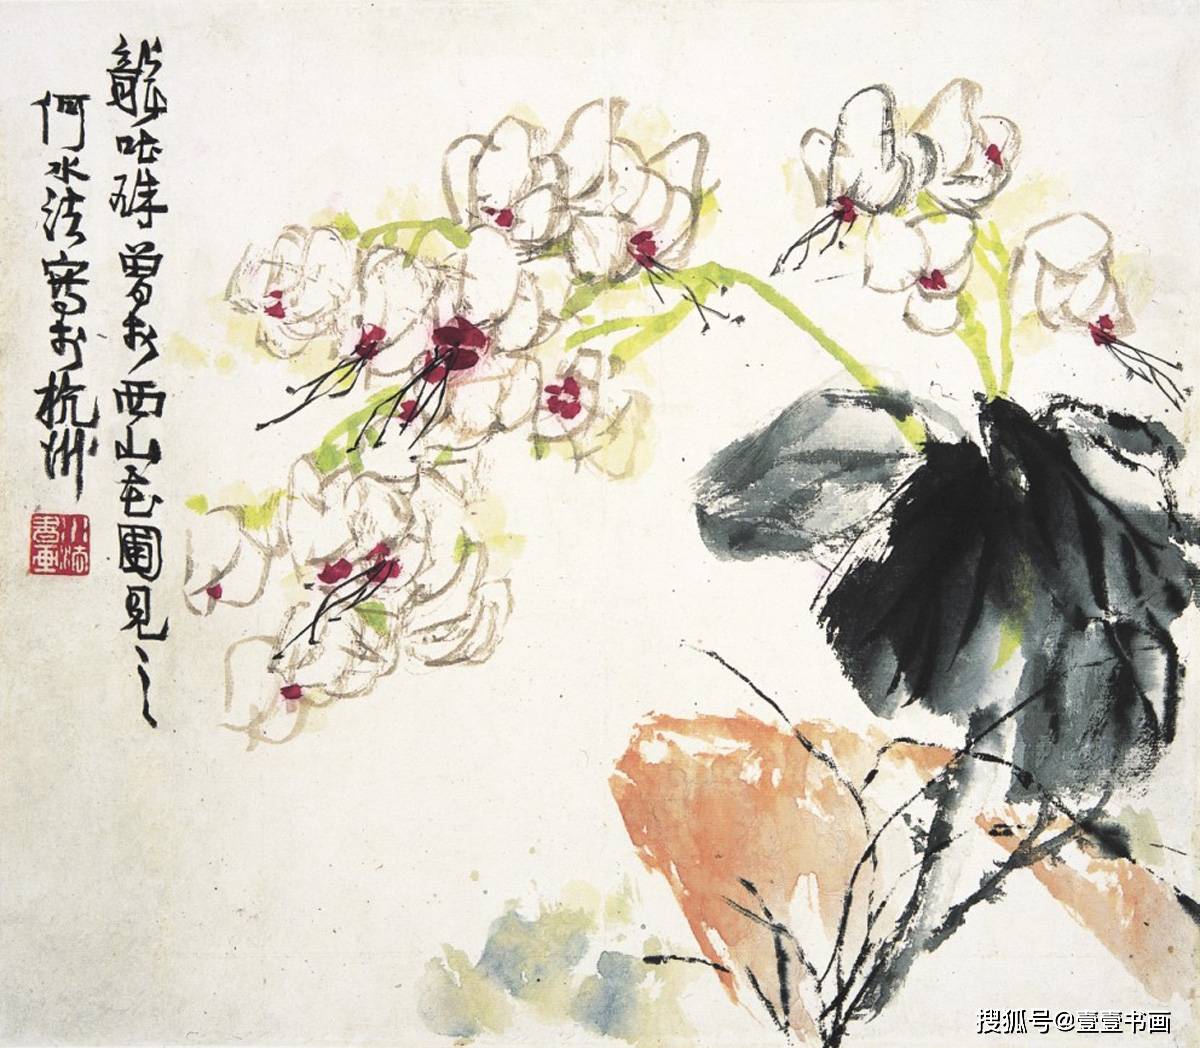 龍吐珠曾於西山花圃見之
何水法寫於杭州
水法書畫
搜狐号@壹壹书画